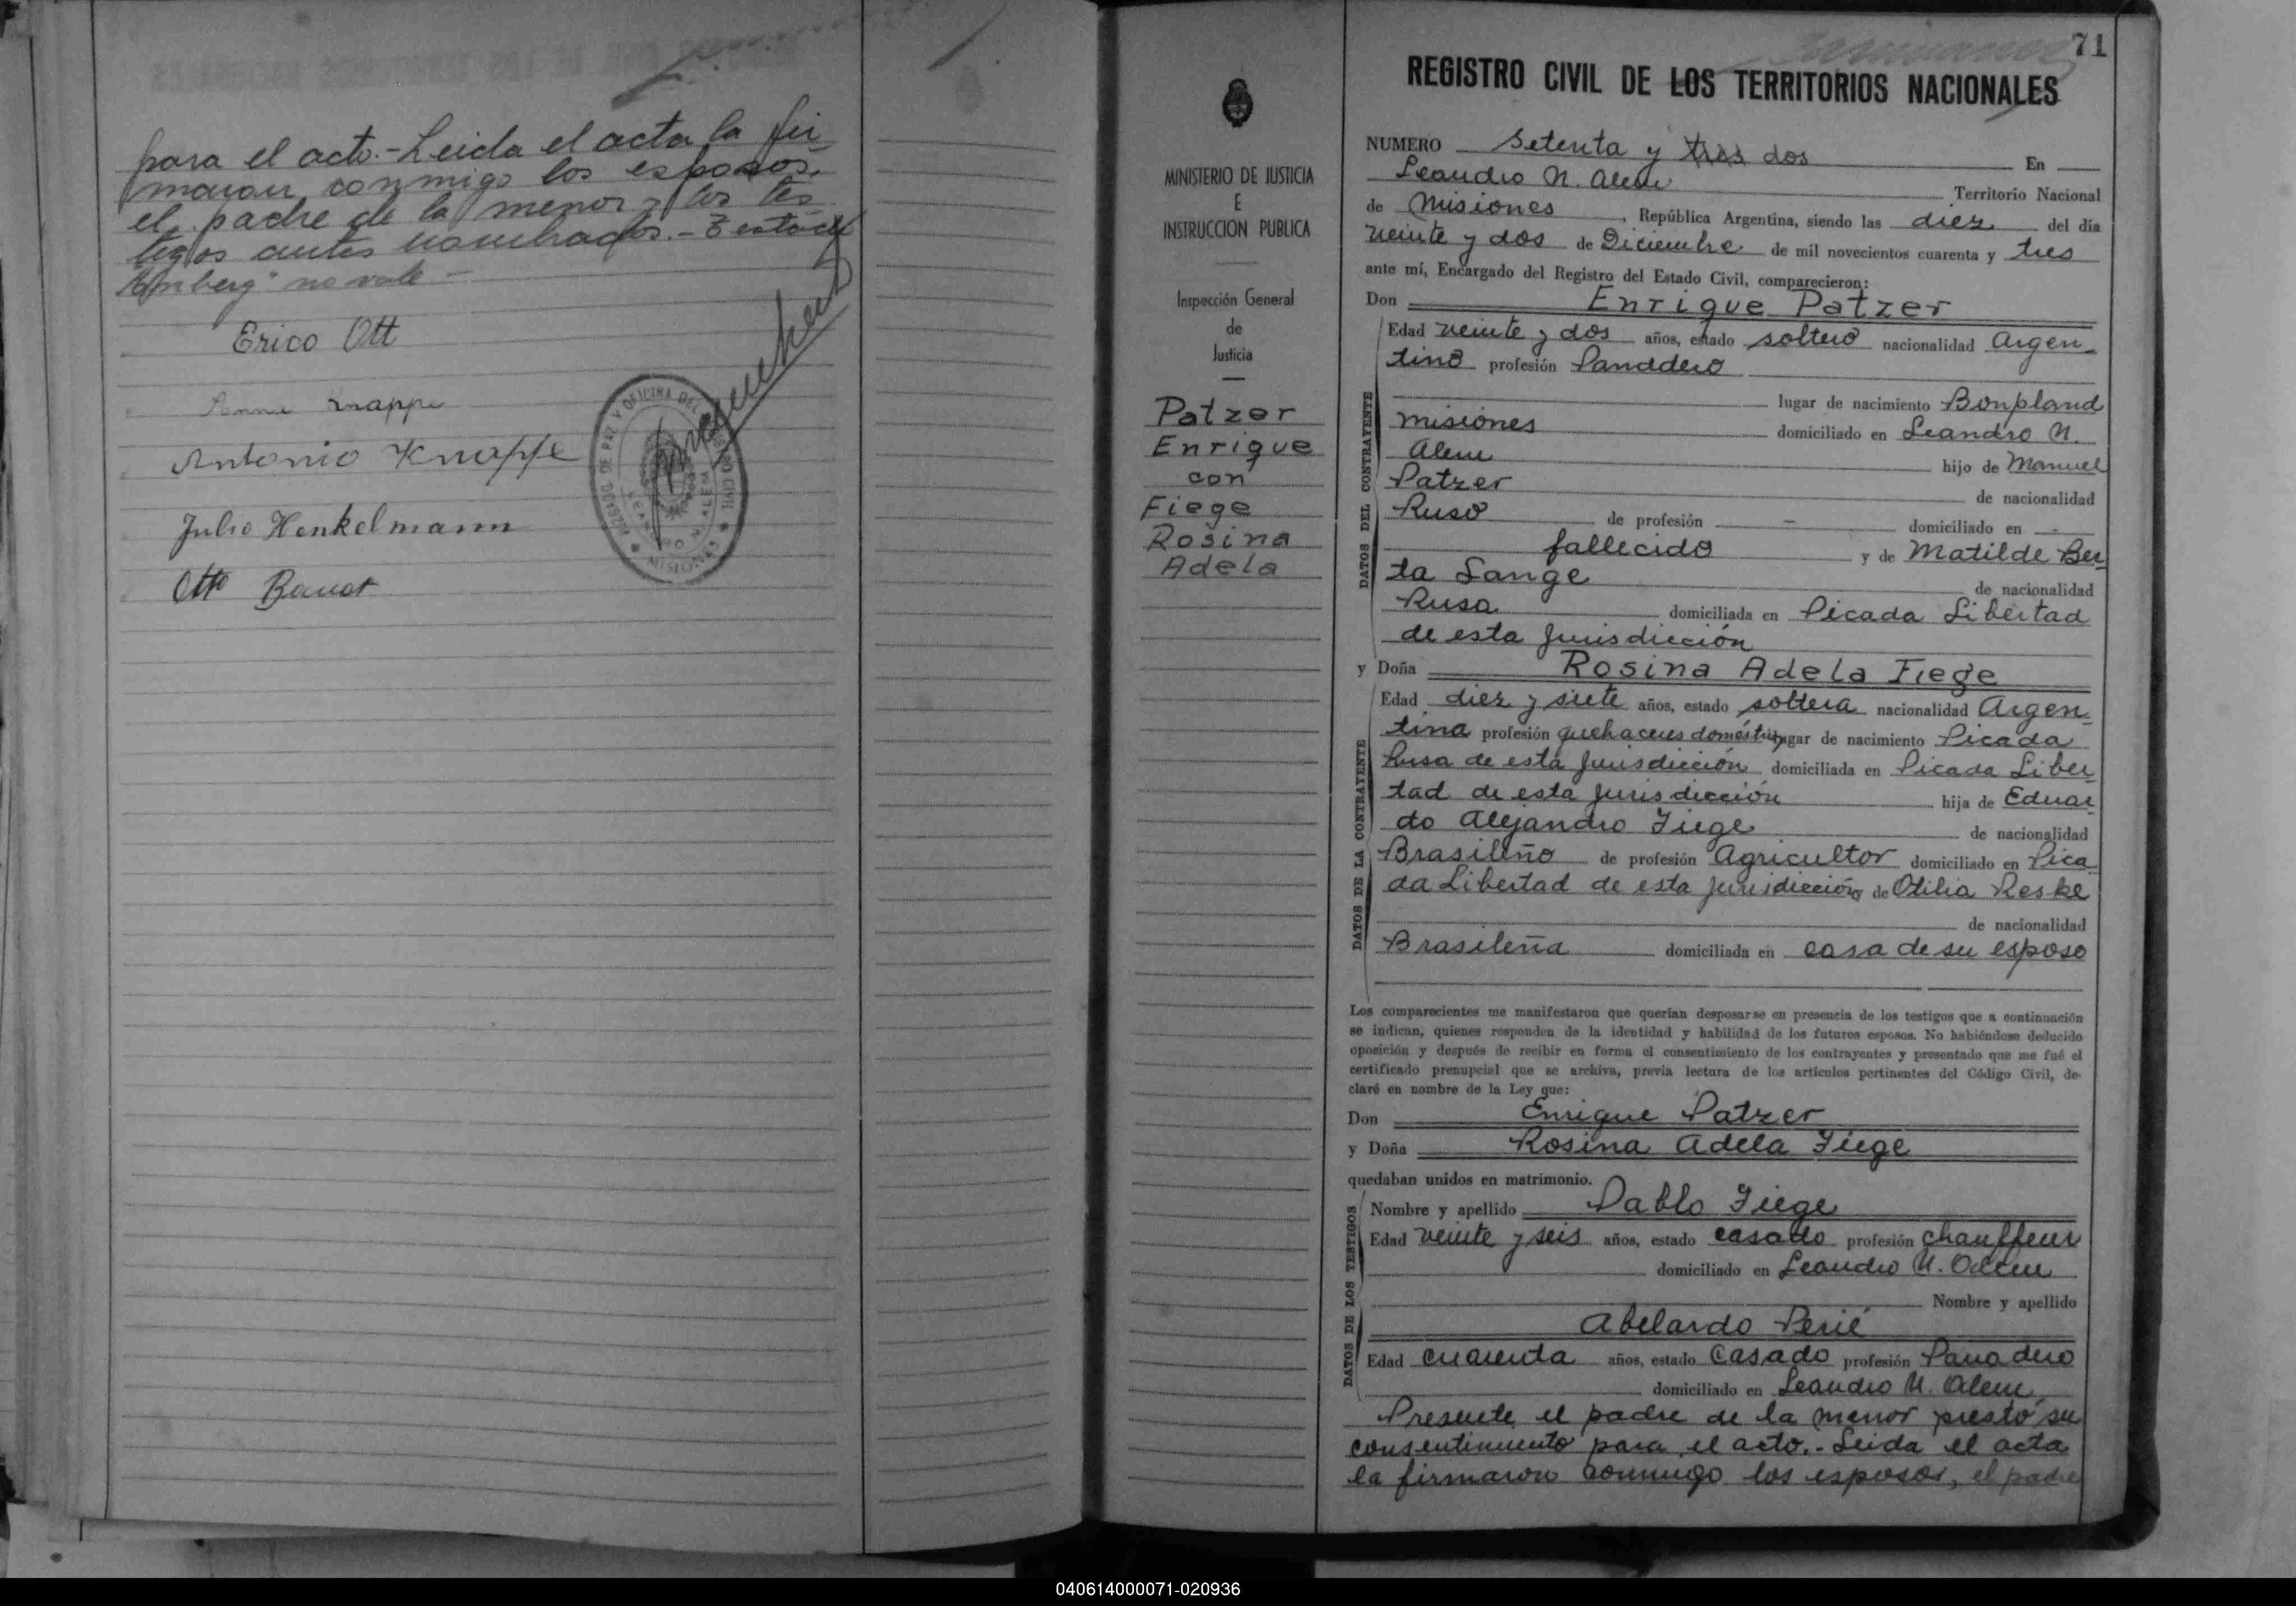 para el acto.- Leida el acta la fir
maron conmigo los esposos,
el padre de la menor y los tes
tigos antes nombrados.-
no vale -
Erico Ott
Knappe
Antonio Knappe
Julio Henkelmann
Otto
JUZGADO DE PAZ Y OFICINA DEL REGISTRO CIVIL
LEANDRO N. ALEM
★ MISIONES ★
71
REGISTRO CIVIL DE LOS TERRITORIOS NACIONALES
MINISTERIO DE JUSTICIA
E
INSTRUCCION PUBLICA
Inspección General
de
Justicia
Patzer
Enrique
con
Fiege
Rosina
Adela
NUMERO Setenta y tres dos En
Leandro N. Alem Territorio Nacional
de Misiones, República Argentina, siendo las diez del día
veinte y dos de Diciembre de mil novecientos cuarenta y tres
ante mí, Encargado del Registro del Estado Civil, comparecieron:
Don Enrique Patzer
DATOS DEL CONTRAYENTE
Edad veinte y dos años, estado soltero nacionalidad Argen
tino profesión Panaddero
lugar de nacimiento Bonpland
Misiones domiciliado en Leandro N.
Alem hijo de Manuel
Patzer de nacionalidad
Ruso de profesión - domiciliado en -
fallecido y de Matilde Ber
ta Lange de nacionalidad
Rusa domiciliada en Picada Libertad
de esta jurisdicción
y Doña Rosina Adela Fiege
DATOS DE LA CONTRAYENTE
Edad diez y siete años, estado soltera nacionalidad Argen
tina profesión quehaceres domésticos lugar de nacimiento Picada
Rusa de esta jurisdicción domiciliada en Picada Liber
tad de esta jurisdicción hija de Eduar
do Alejandro Fiege de nacionalidad
Brasileño de profesión Agricultor domiciliado en Pica
da Libertad de esta jurisdicción y de Otilia Reske
de nacionalidad
Brasileña domiciliada en casa de su esposo
Los comparecientes me manifestaron que querían desposarse en presencia de los testigos que a continuación
se indican, quienes responden de la identidad y habilidad de los futuros esposos. No habiéndose deducido
oposición y después de recibir en forma el consentimiento de los contrayentes y presentado que me fué el
certificado prenupcial que se archiva, previa lectura de los artículos pertinentes del Código Civil, de-
claré en nombre de la Ley que:
Don Enrique Patzer
y Doña Rosina Adela Fiege
quedaban unidos en matrimonio.
DATOS DE LOS TESTIGOS
Nombre y apellido Pablo Fiege
Edad veinte y seis años, estado casado profesión chauffeur
domiciliado en Leandro N. Alem
Nombre y apellido
Abelardo Perié
Edad cuarenta años, estado Casado profesión Panadero
domiciliado en Leandro N. Alem
Presente el padre de la menor prestó su
consentimiento para el acto.- Leida el acta
la firmaron conmigo los esposos, el padre
040614000071-020936